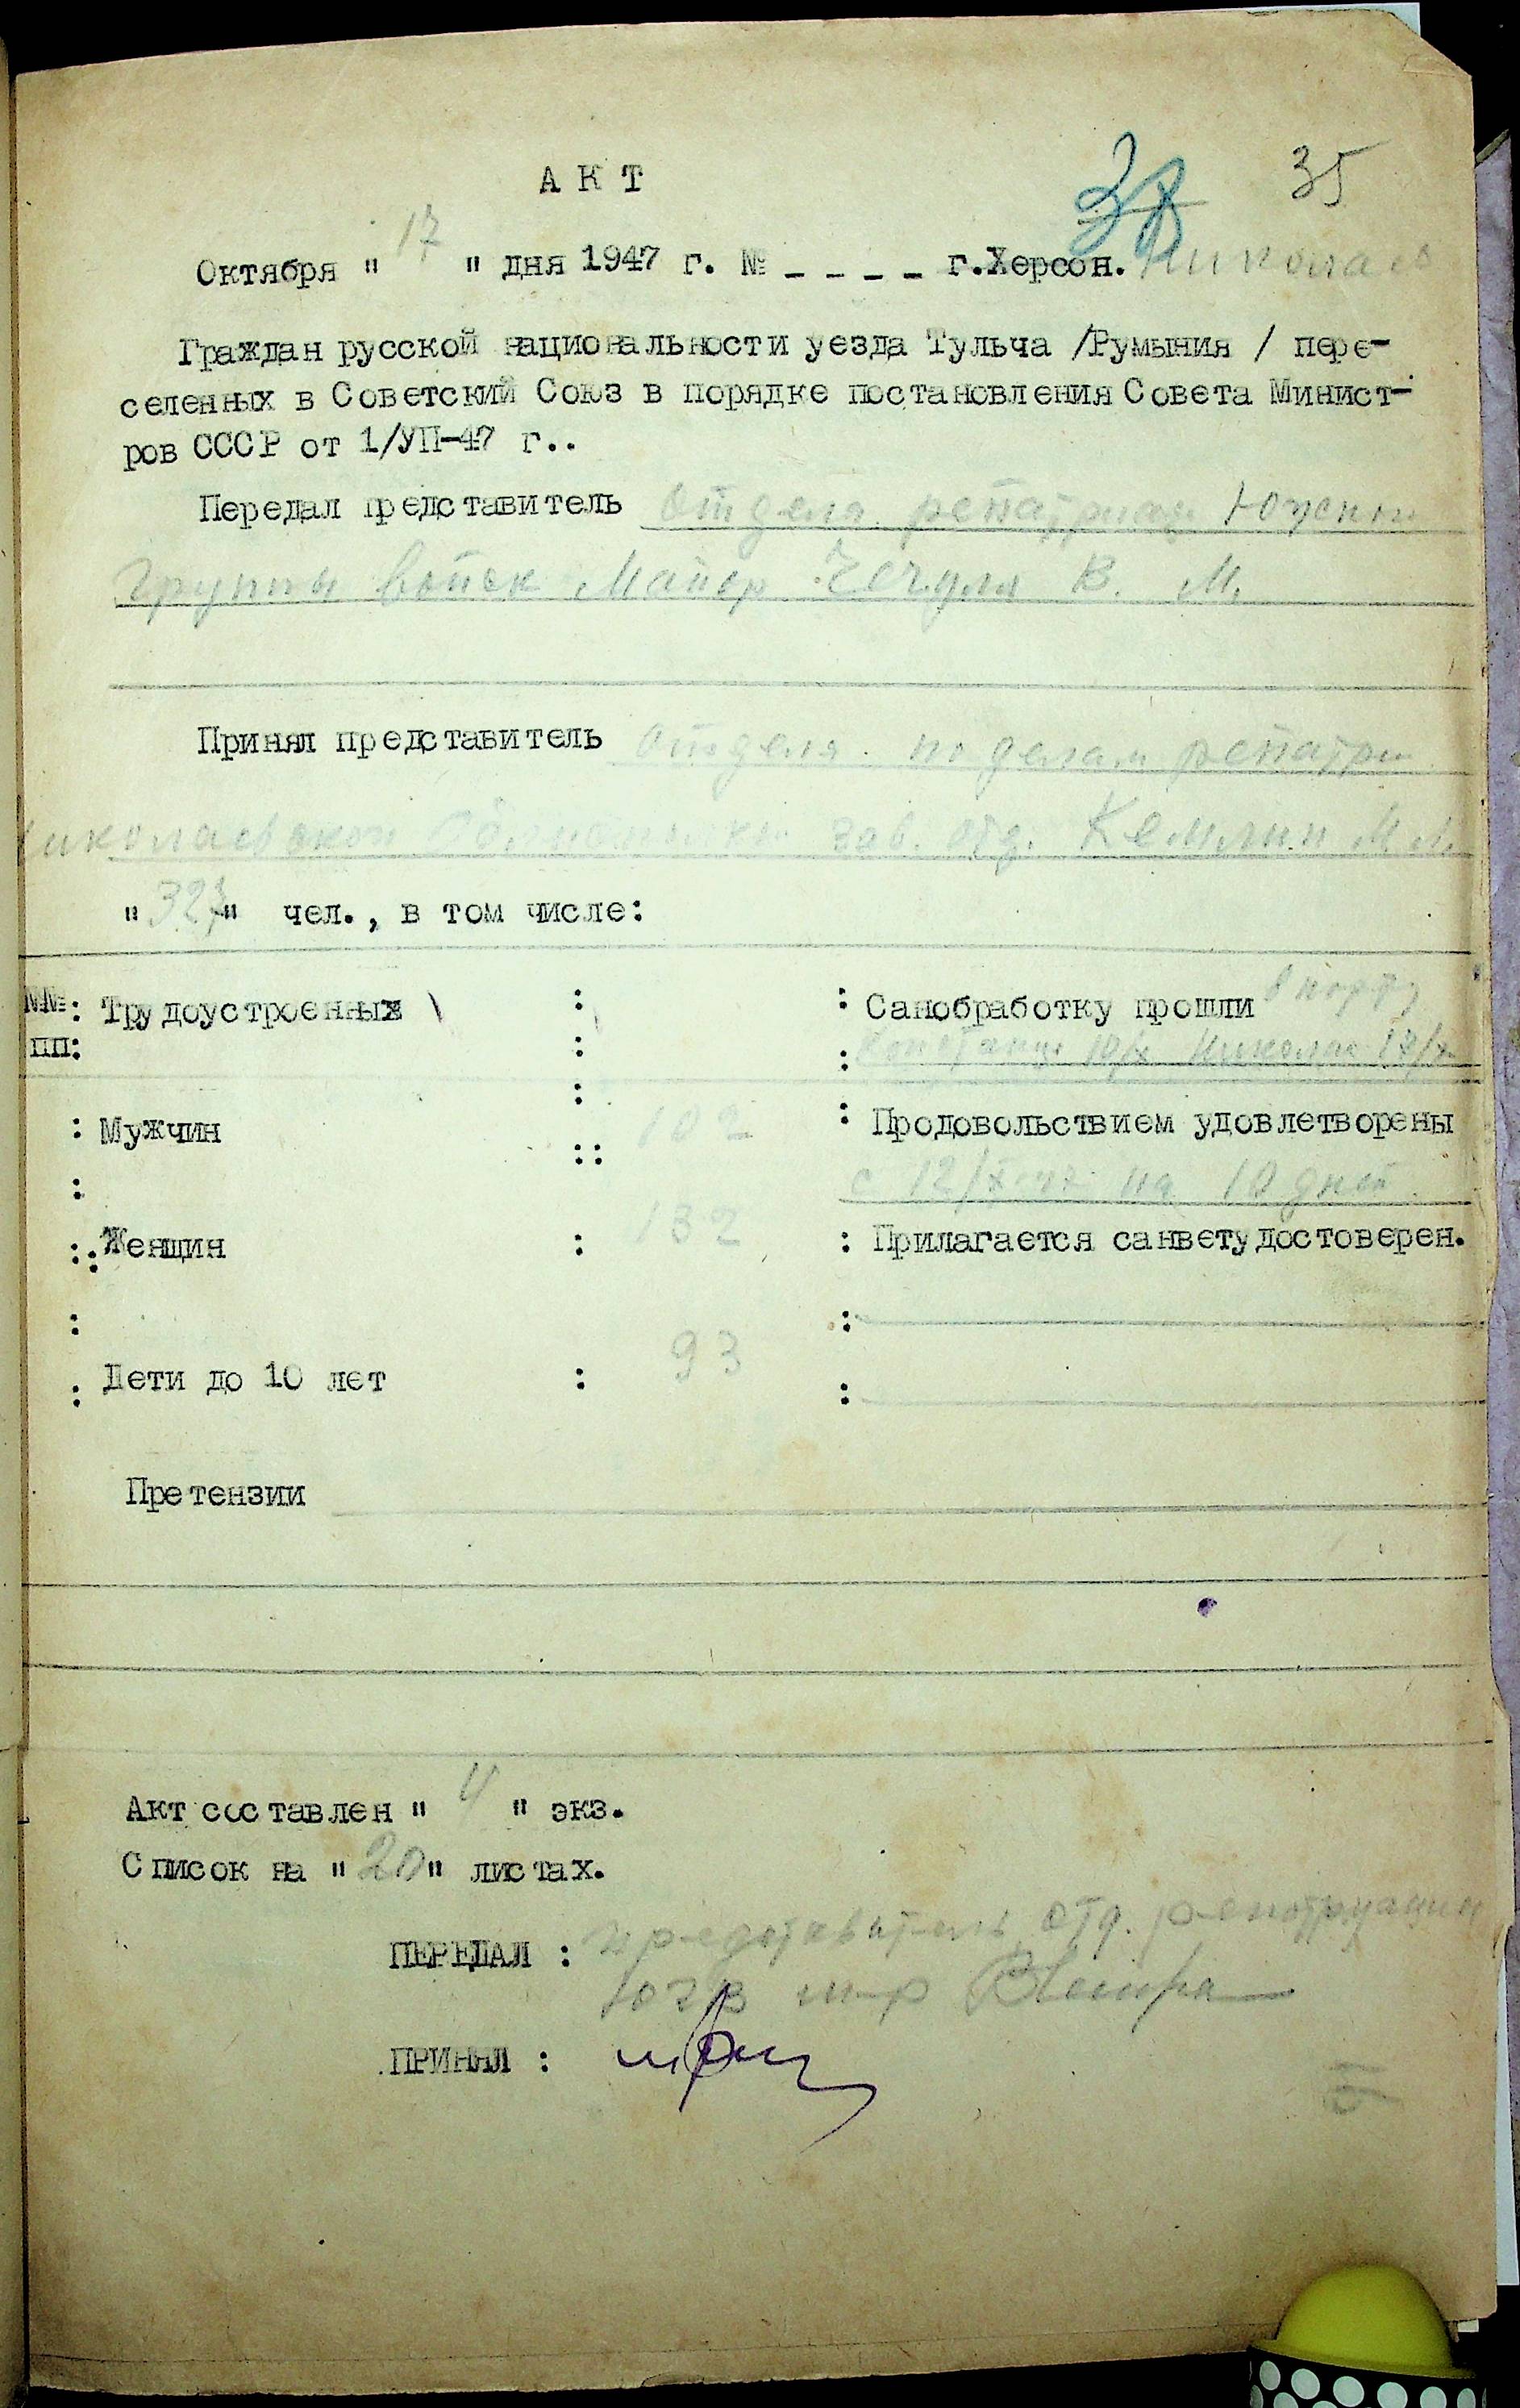 35
38
А К Т
Октября " 17 " дня 1947 г. № _ _ _ _ г.Херсон. Николаев
Граждан русской национальности уезда Тульча /Румыния / пере-
селенных в Советский Союз в порядке постановления Совета Минист-
ров СССР от 1/УП-47 г..
Передал представитель Отдела репатриац. Южной
группы войск Майор Чечуля В. М.
Принял представитель отдела по делам репатри
Николаевской зав. отд. Кемлин М.
" 327 " чел., в том числе:
№№: Трудоустроенных \ : : Санобработку прошли в порту
пп: : : Констанце 10/X Николаев 17/X
:
: Мужчин :: 102 : Продовольствием удовлетворены
: с 12/X-47 на 10 дней
:: Женщин : 132 : Прилагается санветудостоверен.
: :
: Дети до 10 лет : 93 :
Претензии
Акт составлен " 4 " экз.
Список на " 20 " листах.
ПЕРЕДАЛ : представитель отд. репатриации
ЮГВ м-р
ПРИНЯЛ :